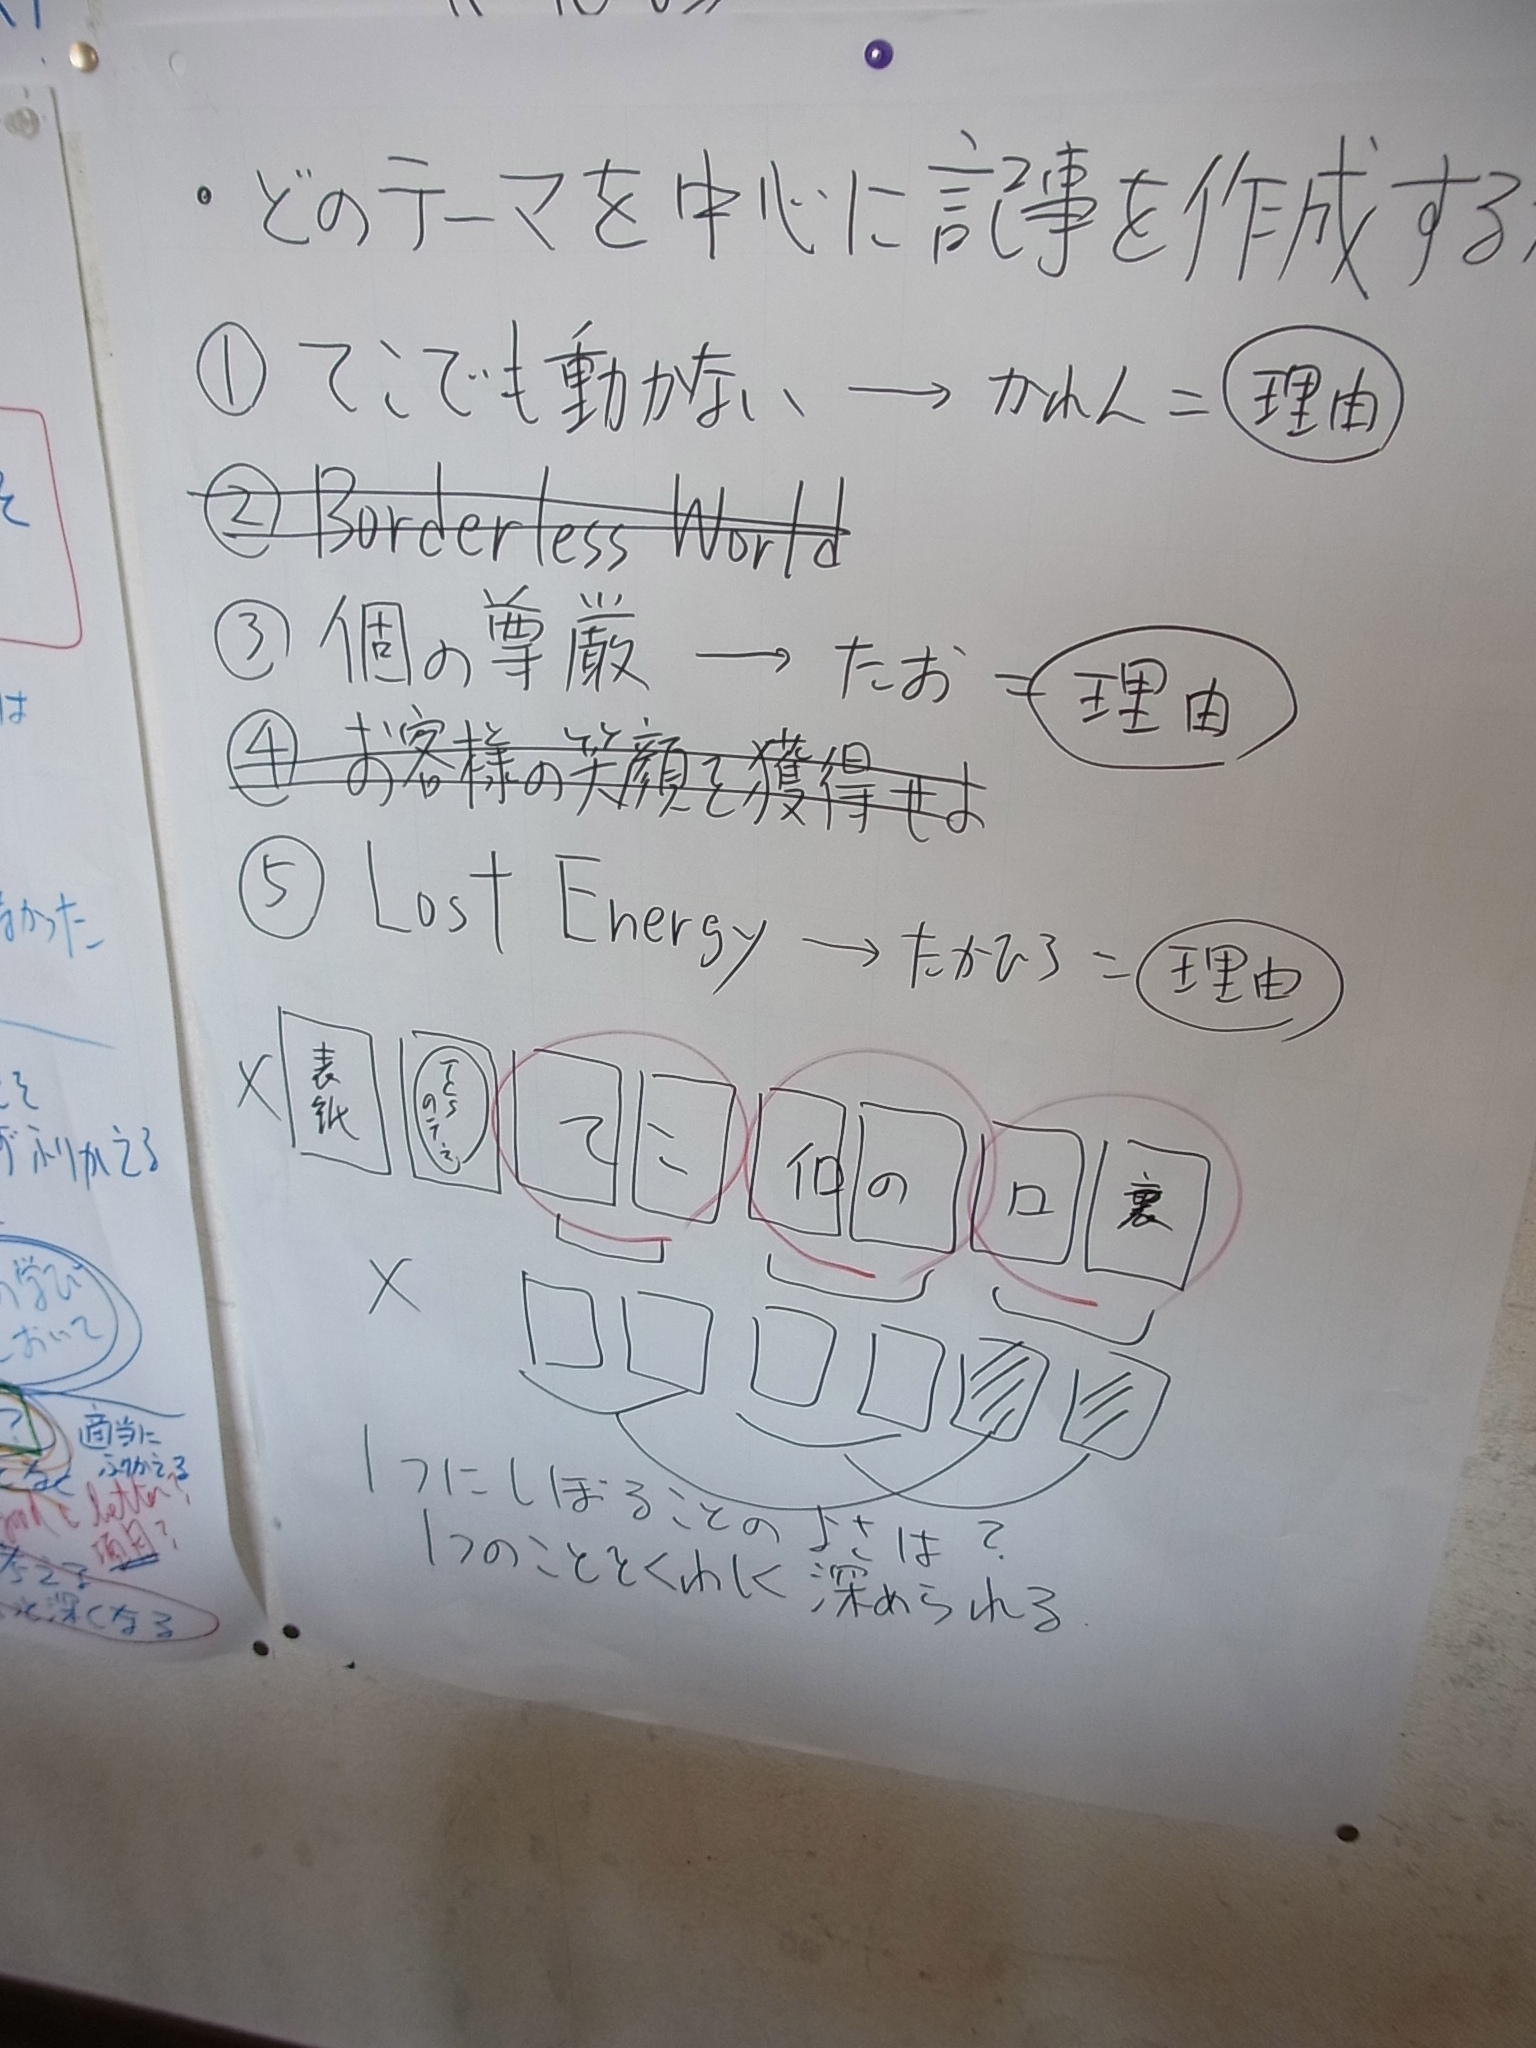 ・どのテーマを中心に記事を作成する
① てこでも動かない → かれん = 理由
② Borderless World
③ 個の尊厳 → たお = 理由
④ お客様の笑顔を獲得せよ
⑤ Lost Energy → たかひろ = 理由
× 表紙
て こ
個 の
ロ 裏
×
1つにしぼることのよさは?
1つのことをくわしく深められる
そ
は
なかった
ふりかえる
学び
において
?
適当に
ふりかえる
letter?
項目?
深くなる